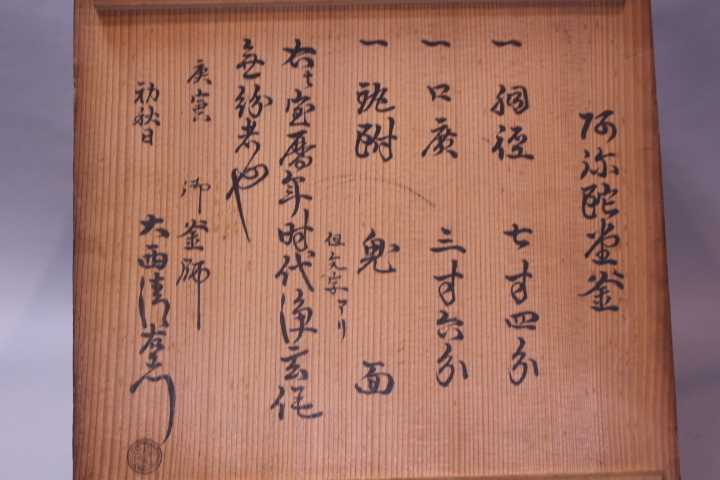 阿弥陀堂釜
一 胴径 七寸四分
一 口広 三寸六分
一 鐶附 鬼面
右ハ宝暦年时代浄玄作
但元字アリ
無紛者也
庚寅
初秋日
御釜師
大西清右衛門